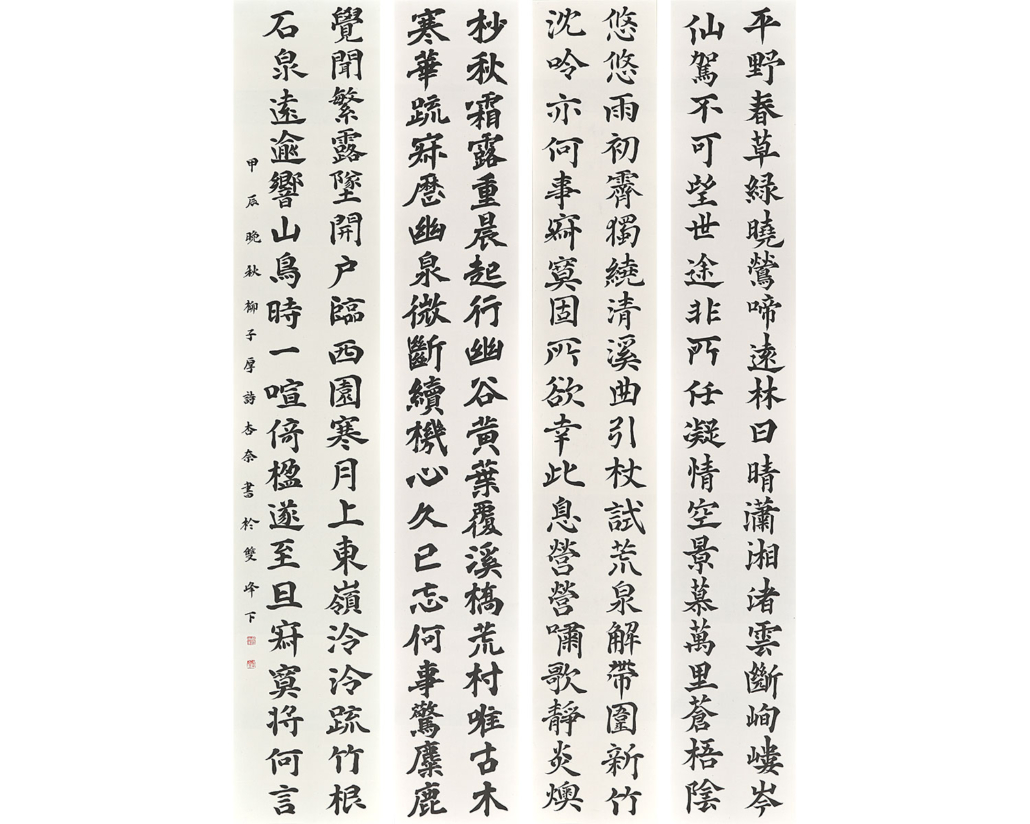 平野春草緑曉鶯啼遠林日晴瀟湘渚雲斷岣嶁岑
仙駕不可望世途非所任凝情空景慕萬里蒼梧陰
悠悠雨初霽獨繞清溪曲引杖試荒泉解帶圍新竹
沈吟亦何事寂寞固所欲幸此息營營嘯歌靜炎燠
杪秋霜露重晨起行幽谷黄葉覆溪橋荒村唯古木
寒華疏寂歷幽泉微斷續機心久已忘何事驚麋鹿
覺聞繁露墜開户臨西園寒月上東嶺泠泠疏竹根
石泉遠逾響山鳥時一喧倚楹遂至旦寂寞將何言
甲辰晚秋柳子厚詩杏奈書於雙峰下